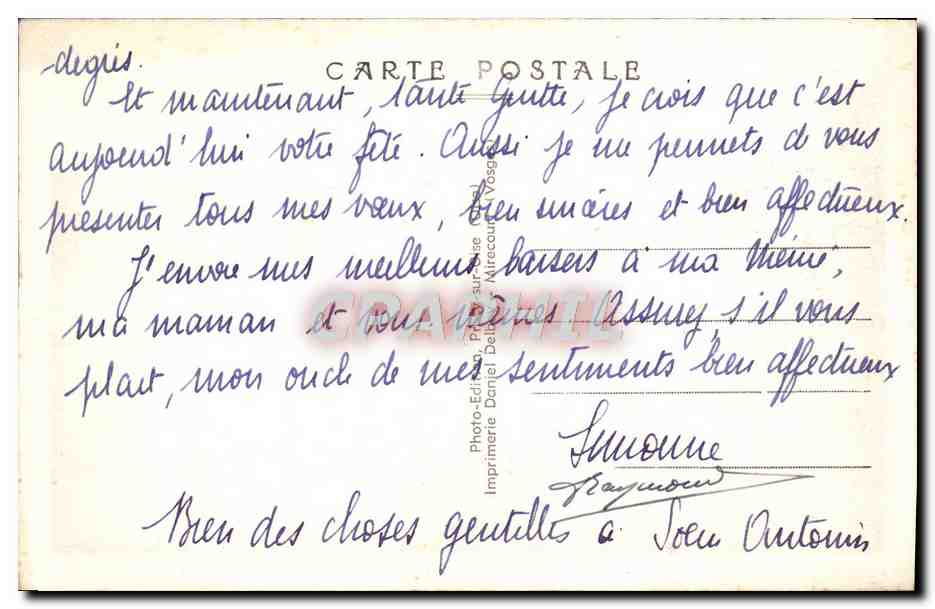 degrés.
CARTE POSTALE
Et maintenant, tante je crois que c'est
aujourd'hui votre fête. Aussi je me permets de vous
présenter tous mes vœux, bien sincères et bien affectueux.
J'envoie mes meilleurs baisers à ma Mémé,
ma maman et vous-mêmes Assurez, s'il vous
plait, mon oncle de mes sentiments bien affectueux
Simonne
Raymond
Bien des choses gentilles à Sœur Antonin
Photo-Edition, sur-Oise
Imprimerie Daniel - Mirecourt (Vosges)
CPAPHIL